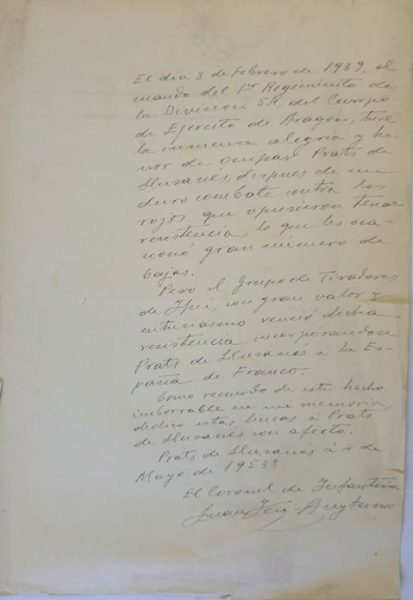 El día 3 de Febrero de 1939, al
mando del 1er Regimiento de
la División 54, del Cuerpo
de Ejercito de Aragón, tuve
la inmensa alegria y ho-
nor de ocupar Prats de
Llusanés, despues de un
duro combate contra los
rojos que opusieron tenaz
resistencia, lo que les oca-
sionó gran número de
bajas.
Pero el Grupo de Tiradores
de Ifni, con gran valor y
entusiasmo venció dicha
resistencia incorporandose
Prats de Llusanés á la Es-
paña de Franco.
Como recuerdo de este hecho,
imborrable en mi memoria,
dedico estas lineas á Prats
de Llusanés con afecto.
Prats de Llusanés á 4 de
Mayo de 1953
El Coronel de Infantería
Juan